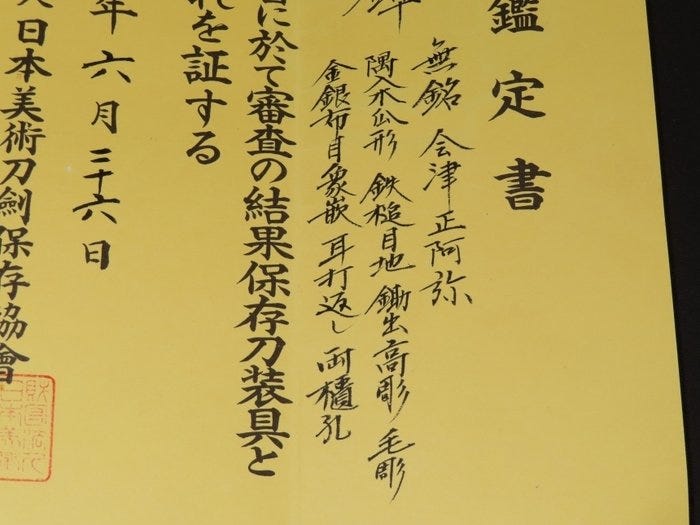 鑑定書
無銘 会津正阿弥
隅入木瓜形 鉄槌目地 鋤出高彫 毛彫
金銀布目象嵌 耳打返し 両櫃孔
に於て審査の結果保存刀装具と
れを証する
年六月二十六日
日本美術刀劍保存協會